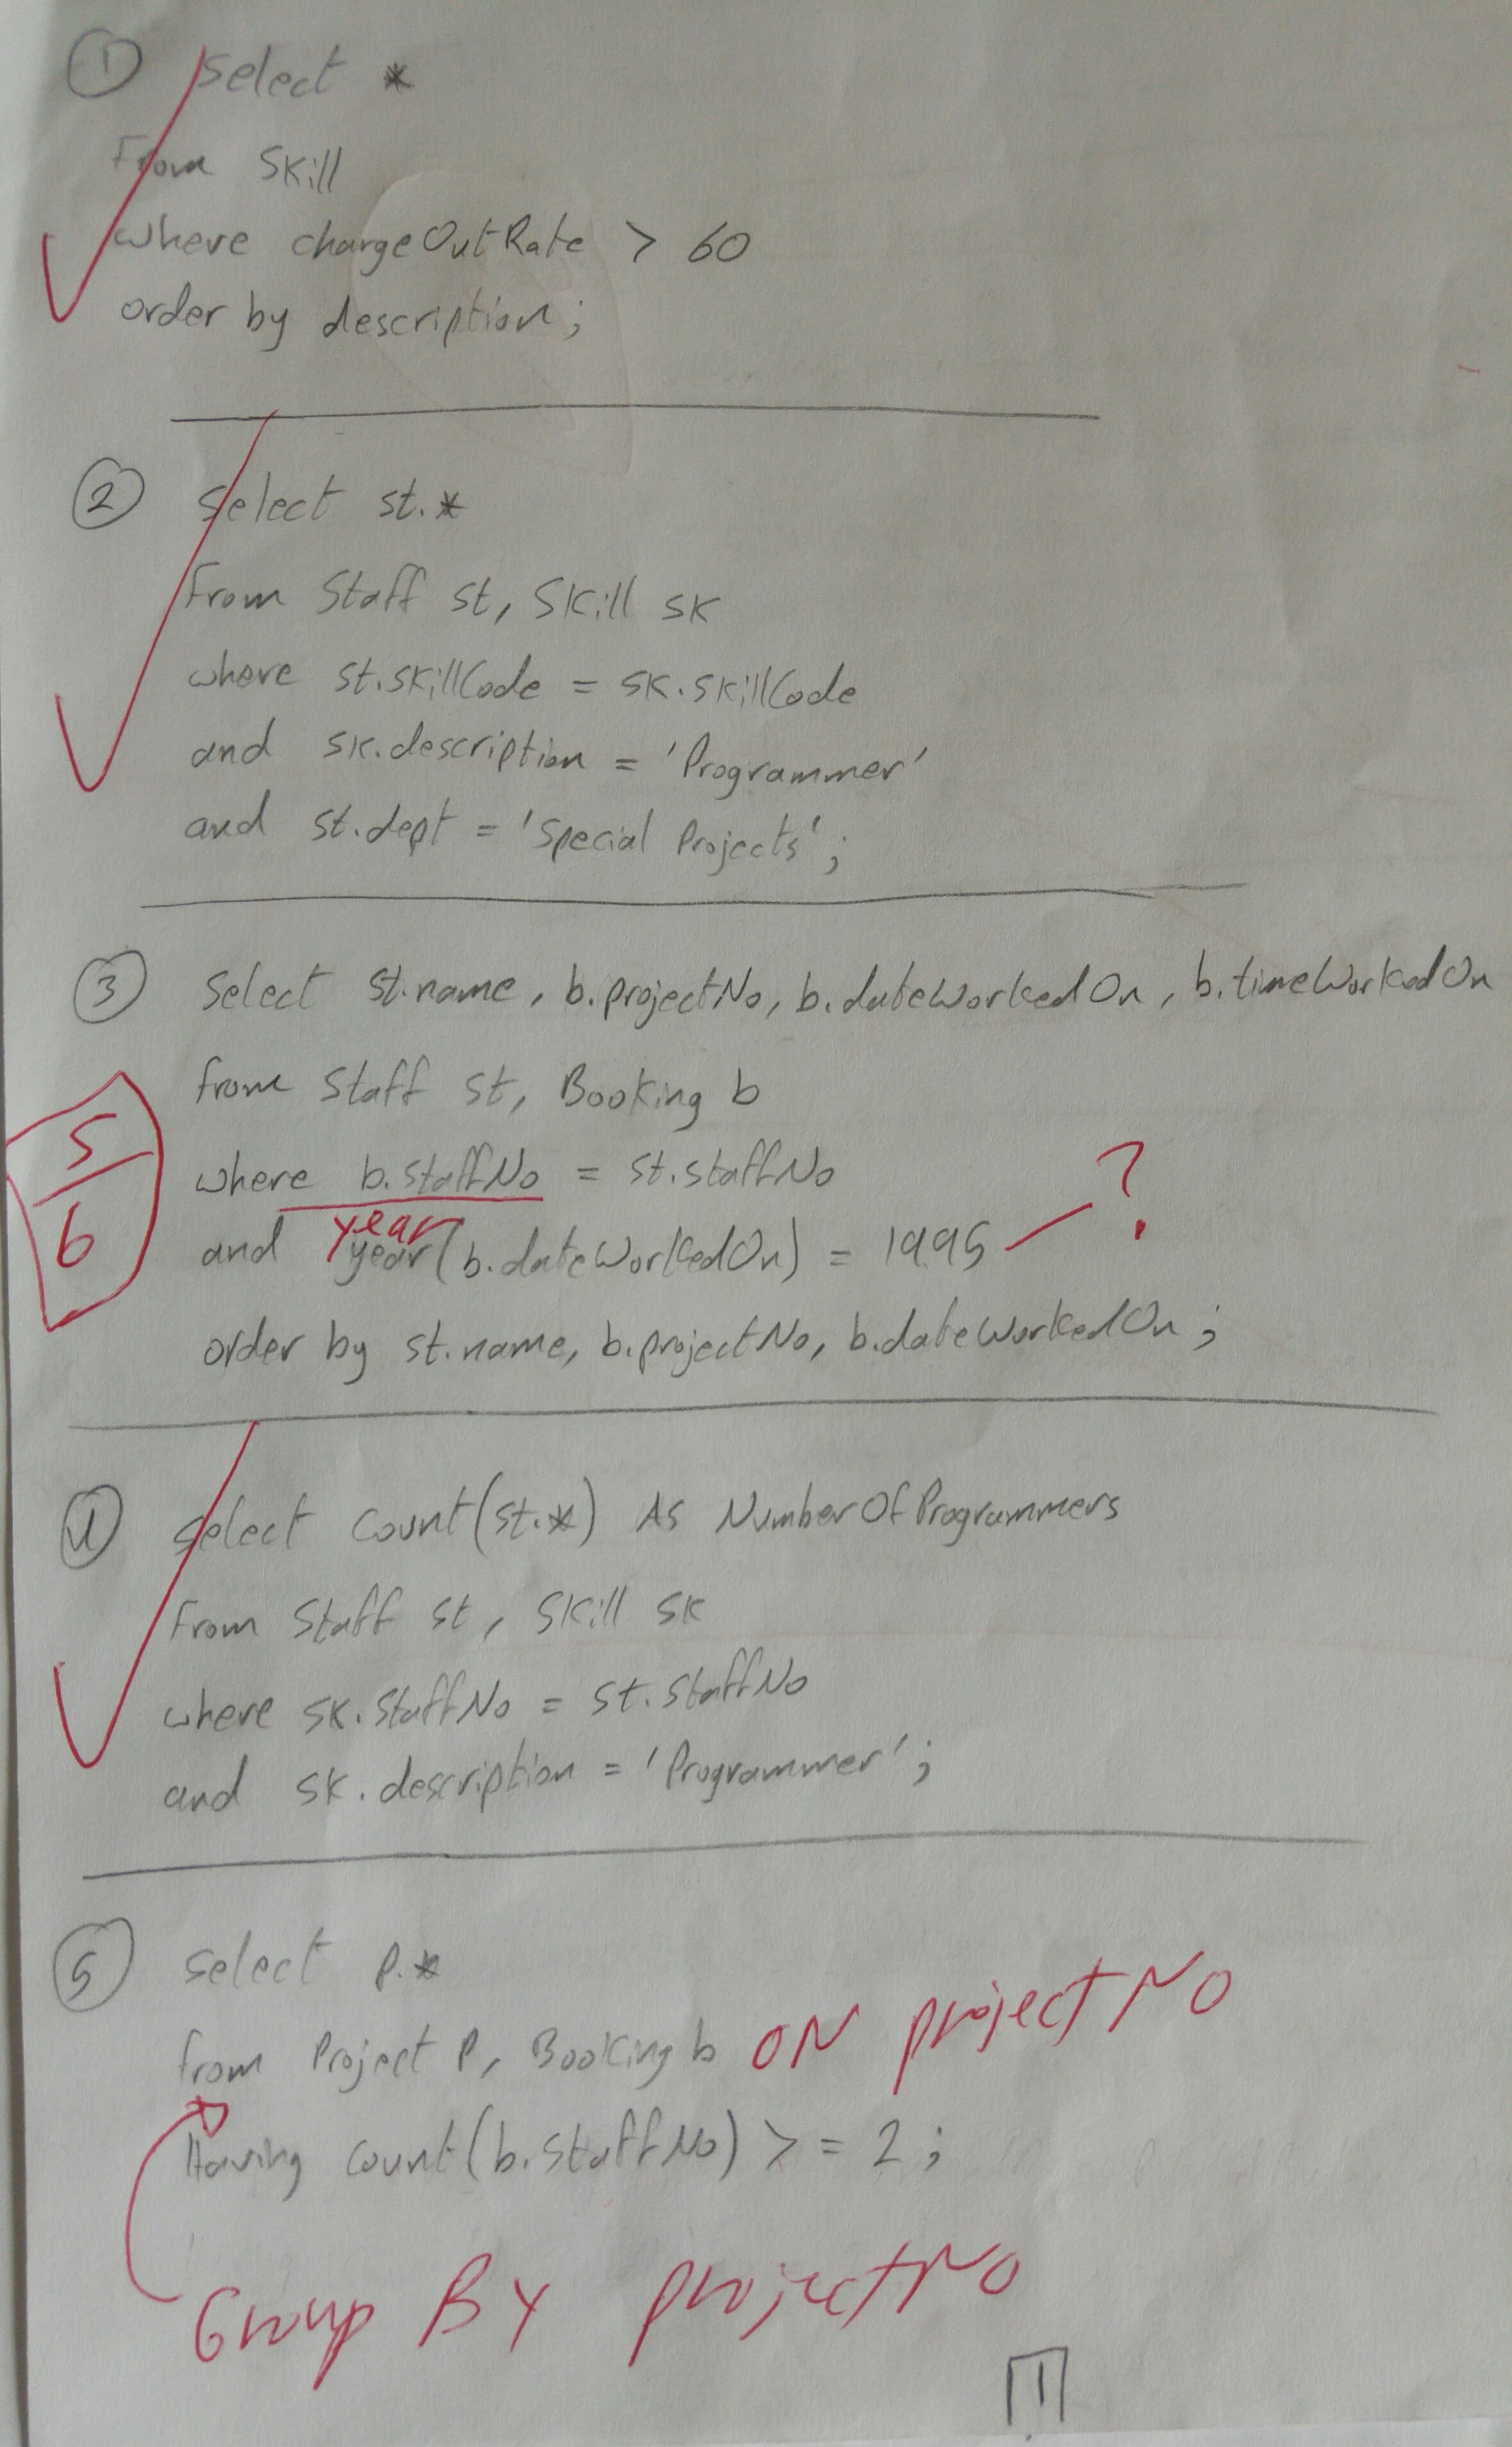 ① select *
From Skill
where chargeOutRate > 60
order by description;
② select st.*
From Staff st, Skill sk
where st.skillCode = sk.skillCode
and sk.description = 'Programmer'
and st.dept = 'Special Projects';
③ select st.name, b.projectNo, b.dateWorkedOn, b.timeWorkedOn
from Staff st, Booking b
5/6
where b.staffNo = st.staffNo
?
year
and year(b.dateWorkedOn) = 1995
order by st.name, b.projectNo, b.dateWorkedOn;
④ select count(st.*) As NumberOfProgrammers
From Staff st, Skill sk
where sk.staffNo = st.staffNo
and sk.description = 'Programmer';
⑤ select p.*
from Project P, Booking b ON projectNo
Having count(b.staffNo) >= 2;
Group By projectNo